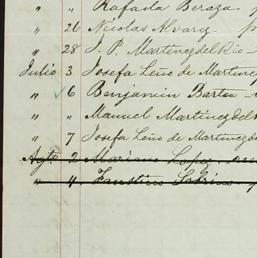 " " Rafaela Beraza
" 26 Nicolas Alvarez
" 28 J. P. Martinez del Rio
Julio 3 Josefa Leño de Martinez
" 6 Benjamin Barton
" " Manuel Martinez del
" 7 Josefa Leño de Martinez d
Agto 2 Mariano Lopez
" 4 Faustino Sobrino